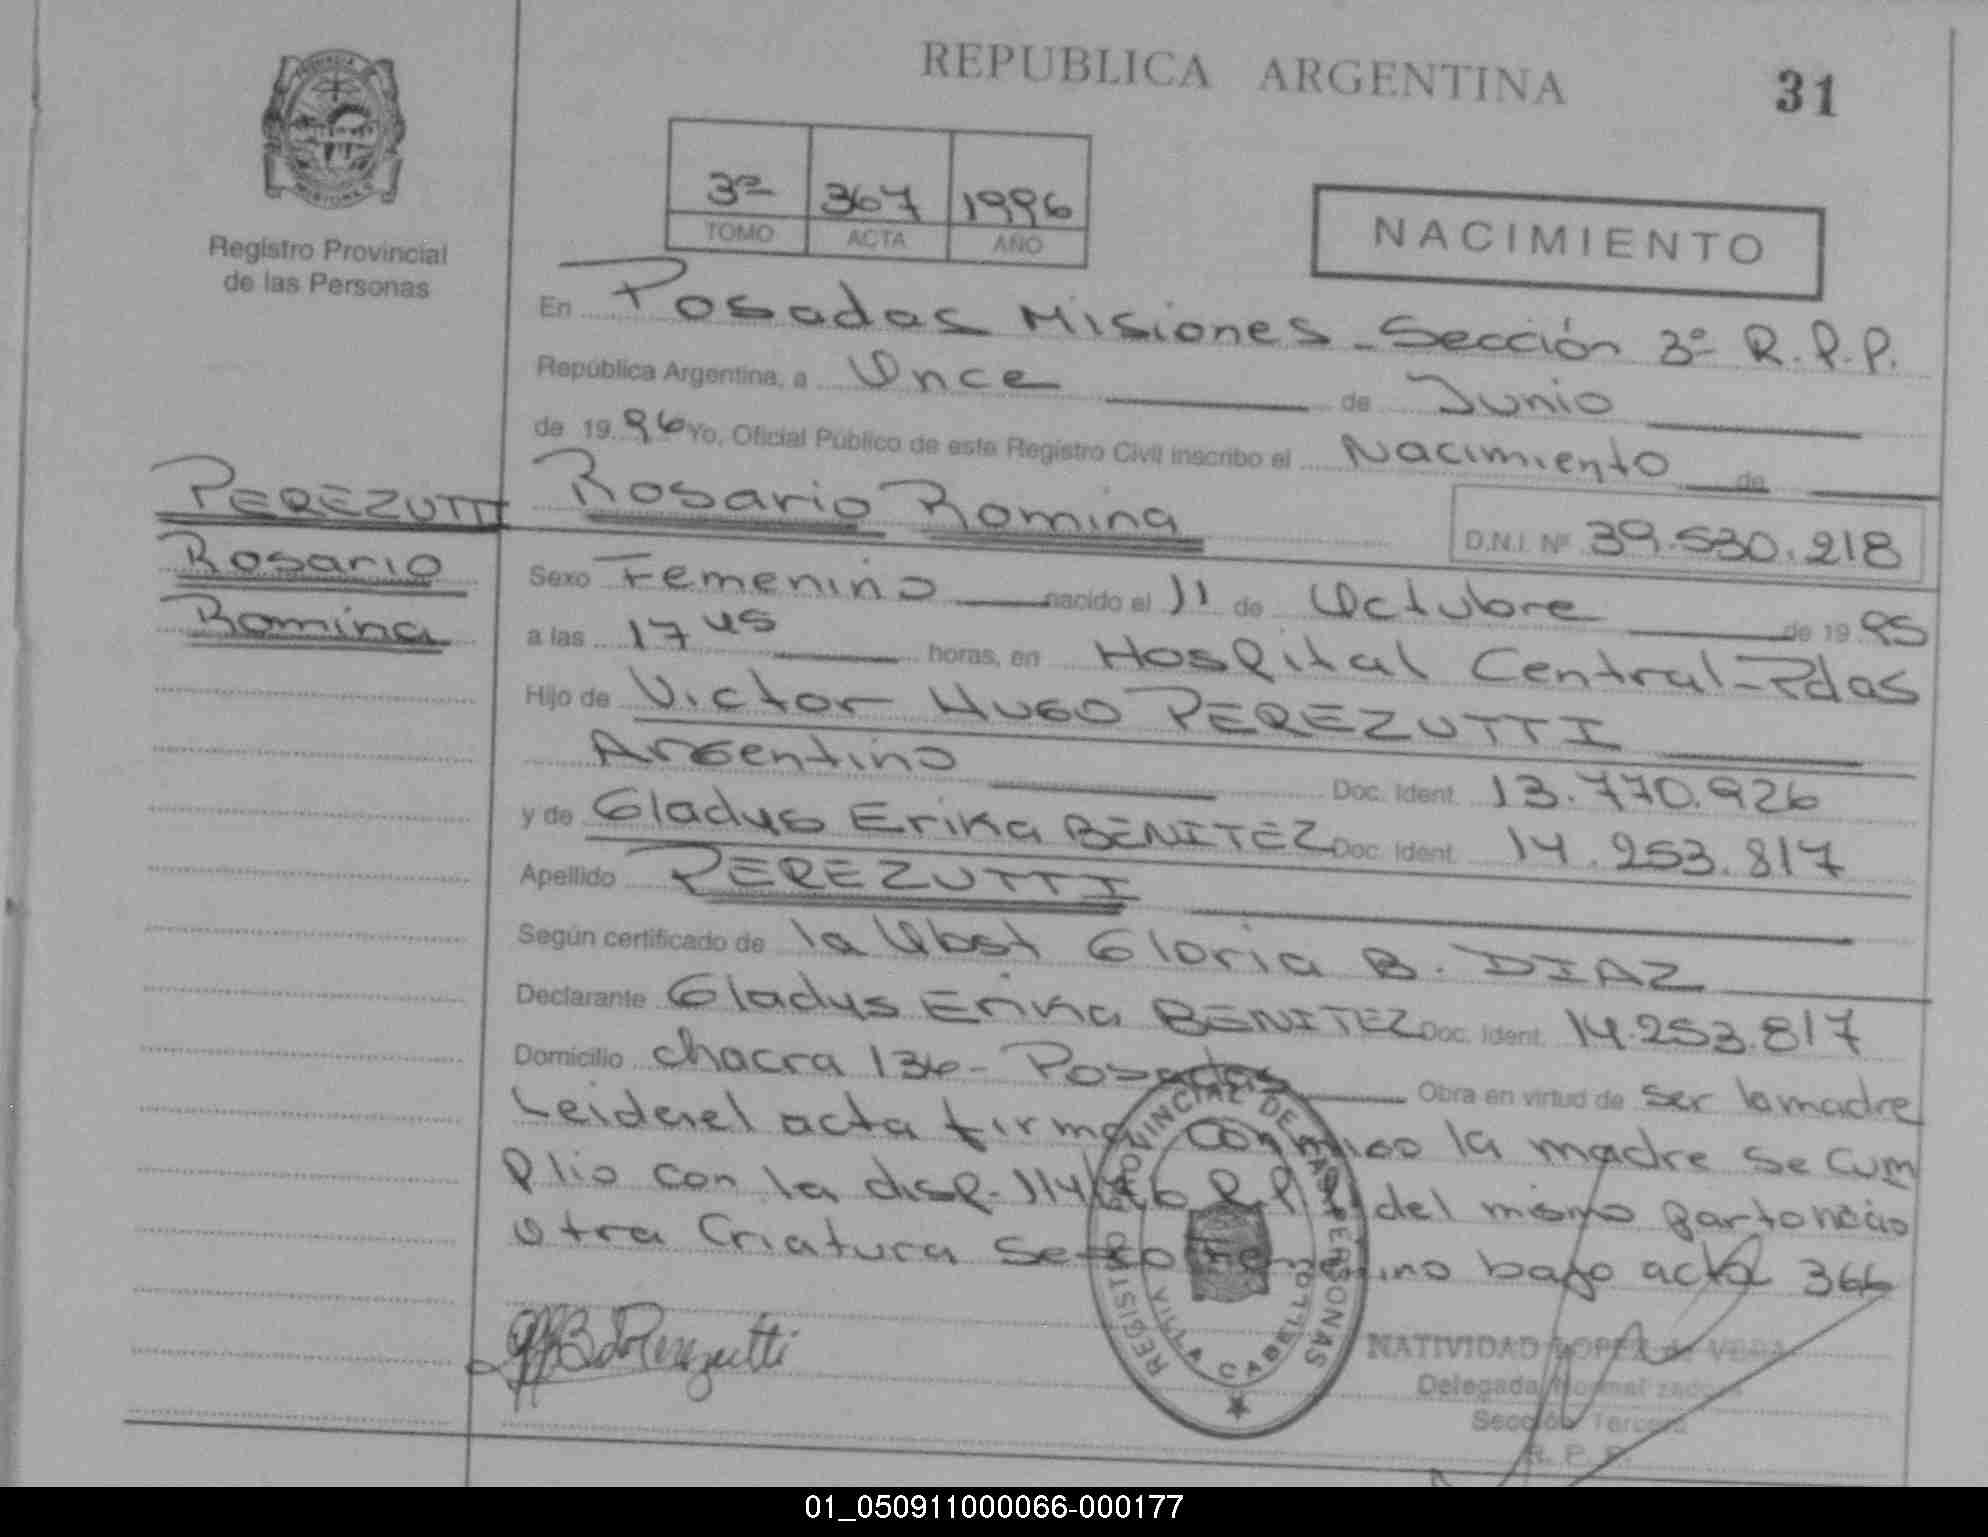 REPUBLICA ARGENTINA
31
3ª 367 1996
TOMO ACTA AÑO
NACIMIENTO
Registro Provincial
de las Personas
En Posadas Misiones - Sección 3ª R.P.P.
República Argentina, a Once de Junio
de 1996 Yo, Oficial Público de este Registro Civil inscribo el Nacimiento de
PEREZUTTI
Rosario
Romina
Rosario Romina D.N.I. Nº 39.530.218
Sexo Femenino nacido el 11 de Octubre de 1995
a las 17 45 horas, en Hospital Central - Pdas
Hijo de Victor Hugo PEREZUTTI
Argentino Doc. Ident. 13.770.926
y de Gladys Erika BENITEZ Doc. Ident. 14.253.817
Apellido PEREZUTTI
Según certificado de la Obst Gloria B. DIAZ
Declarante Gladys Erika BENITEZ Doc. Ident. 14.253.817
Domicilio chacra 136 - Posadas Obra en virtud de ser la madre
Leida el acta firma conmigo la madre se cum
plio con la disp. 114 del mismo parto nacio
otra Criatura Sexo Femenino bajo acta 366
REGISTRO PROVINCIAL DE LAS PERSONAS
VILLA CABELLO
NATIVIDAD LOPEZ de VERA
Delegada Normalizadora
Sección Tercera
R. P. P.
01_050911000066-000177